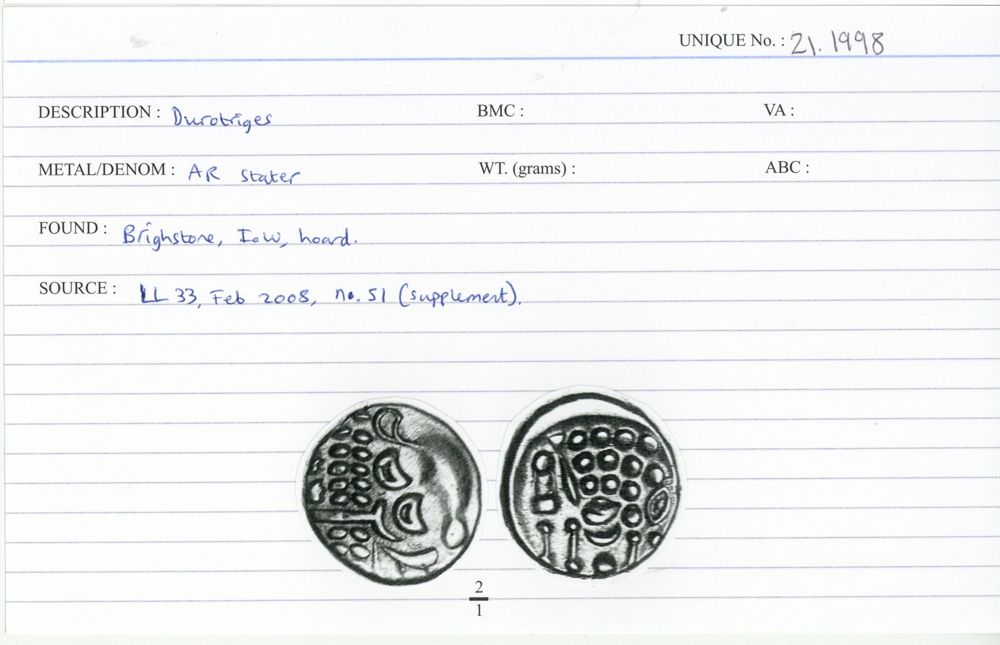 UNIQUE No. : 21.1998
DESCRIPTION : Durotriges BMC : VA :
METAL/DENOM : AR stater WT. (grams) : ABC :
FOUND : Brighstone, IoW, hoard.
SOURCE : LL 33, Feb 2008, no. 51 (supplement).
2
1